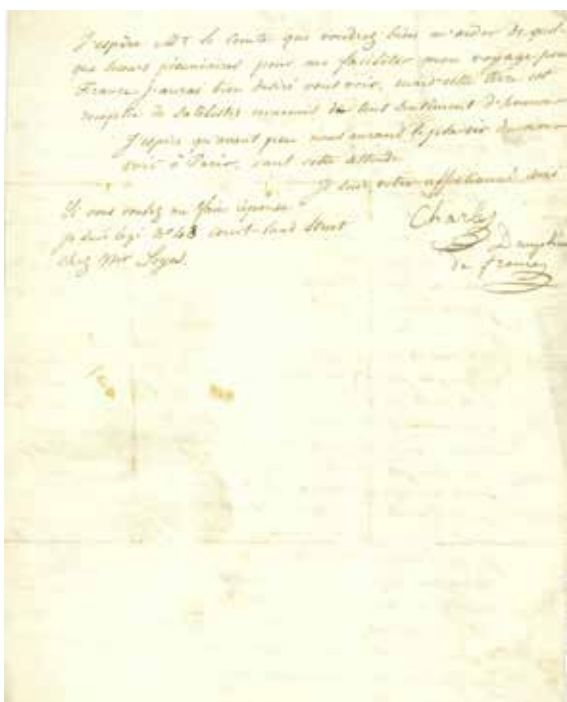 J'espère Mr le Comte que voudrez bien m'aider de quel-
que secours pécuniaires pour me faciliter mon voyage pour
France j'aurais bien desiré vous voir, mais cette terre est
remplie de satellites ennemis de tout sentiment d'honneur
J'espère qu'avant peu nous aurons le plaisir de nous
voir à Paris, dans cette attente
Je suis votre affectionné ami
Si vous voulez me faire réponse
je suis logé No 48 Court-land Street
chez Mr
Charles
Dauphin
de france